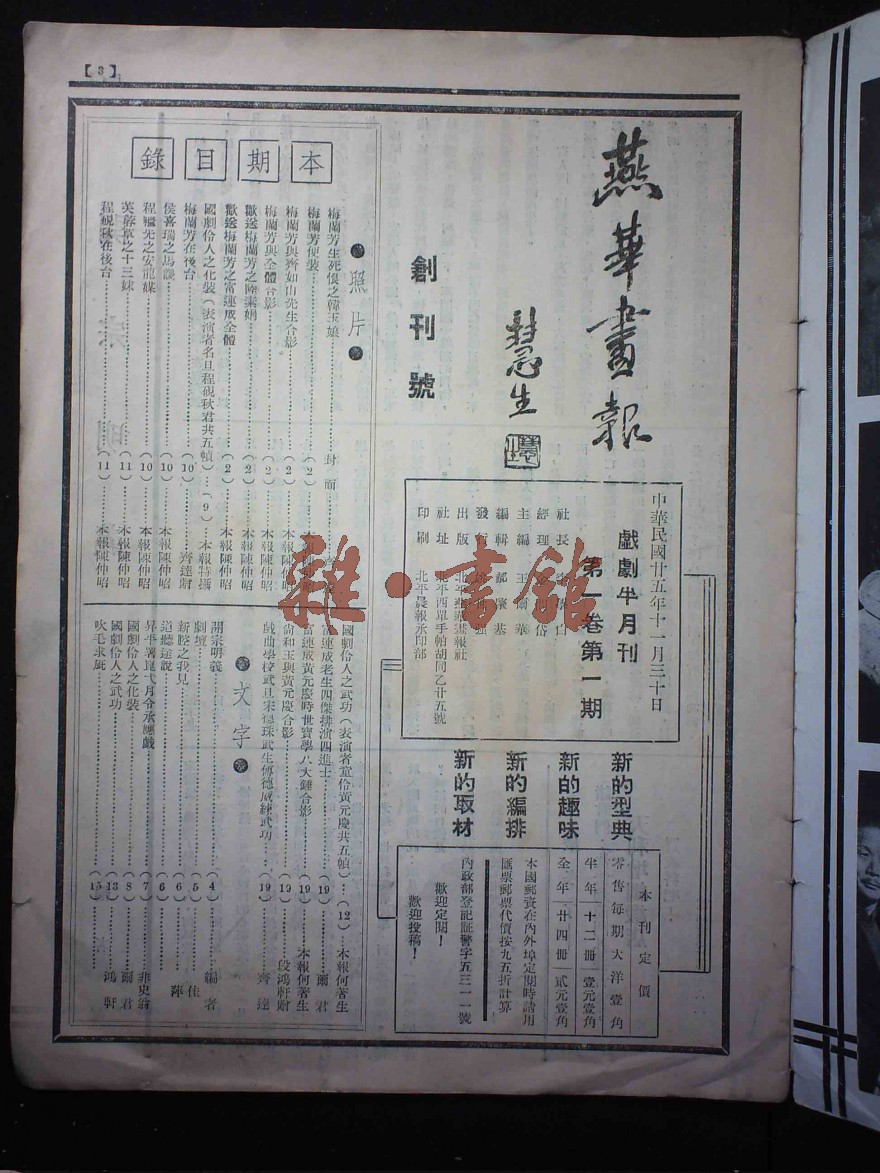 【3】
燕華畫報
慧生
創刊號
中華民國廿五年十一月三十日
戲劇半月刊
第一卷第一期
社長
經理
主編 王爾華
編輯
發行
出版 北平燕華畫報社
社址 北平西單手帕胡同乙廿五號
印刷 北平晨報承印部
新的型典
新的趣味
新的編排
新的取材
本刊定價
零售每期大洋壹角
半年 十二冊 壹元壹角
全年 廿四冊 貳元壹角
本國郵資在內外埠定閱時請用
匯票郵票代價按九五折計算
內政部登記証警字五三一一號
歡迎定閱!
歡迎投稿!
本期目錄
照片
梅蘭芳生死恨之韓玉娘 封面
梅蘭芳便裝 (2) 本報陳仲昭
梅蘭芳與齊如山先生合影 (2) 本報陳仲昭
梅蘭芳與全體合影 (2) 本報陳仲昭
歡送梅蘭芳之陸素娟 (2) 本報陳仲昭
歡送梅蘭芳之富連成全體 (2) 本報陳仲昭
國劇伶人之化裝(表演者名旦程硯秋君共五幀) (9) 本報特攝
梅蘭芳在後台 (10) 齊達尉
侯喜瑞之馬謖 (10) 本報陳仲昭
程繼先之安龍媒 (10) 本報陳仲昭
英蓉草之十三妹 (11) 本報陳仲昭
程硯秋在後台 (11) 本報陳仲昭
國劇伶人之武功(表演者童伶黃元慶共五幀) (12) 本報何著生
富連成老生四傑排演四進士 (19) 爾君
富連成黃元慶時世寶學八大錘合影 (19) 本報何著生
尚和玉與黃元慶合影 (19) 段鴻軒尉
戲曲學校武旦宋德珠武生傅德威練武功 (19) 齊達
文字
開宗明義 (4) 編者
劇壇 (5) 佳
新腔之我見 (6) 萍
道聽途說 (6)
昇平署崑弋月令承應戲 (7) 非史翁
國劇伶人之化裝 (8) 爾君
國劇伶人之武功 (13) 鴻軒
吹毛求疵 (15)
雜·書館